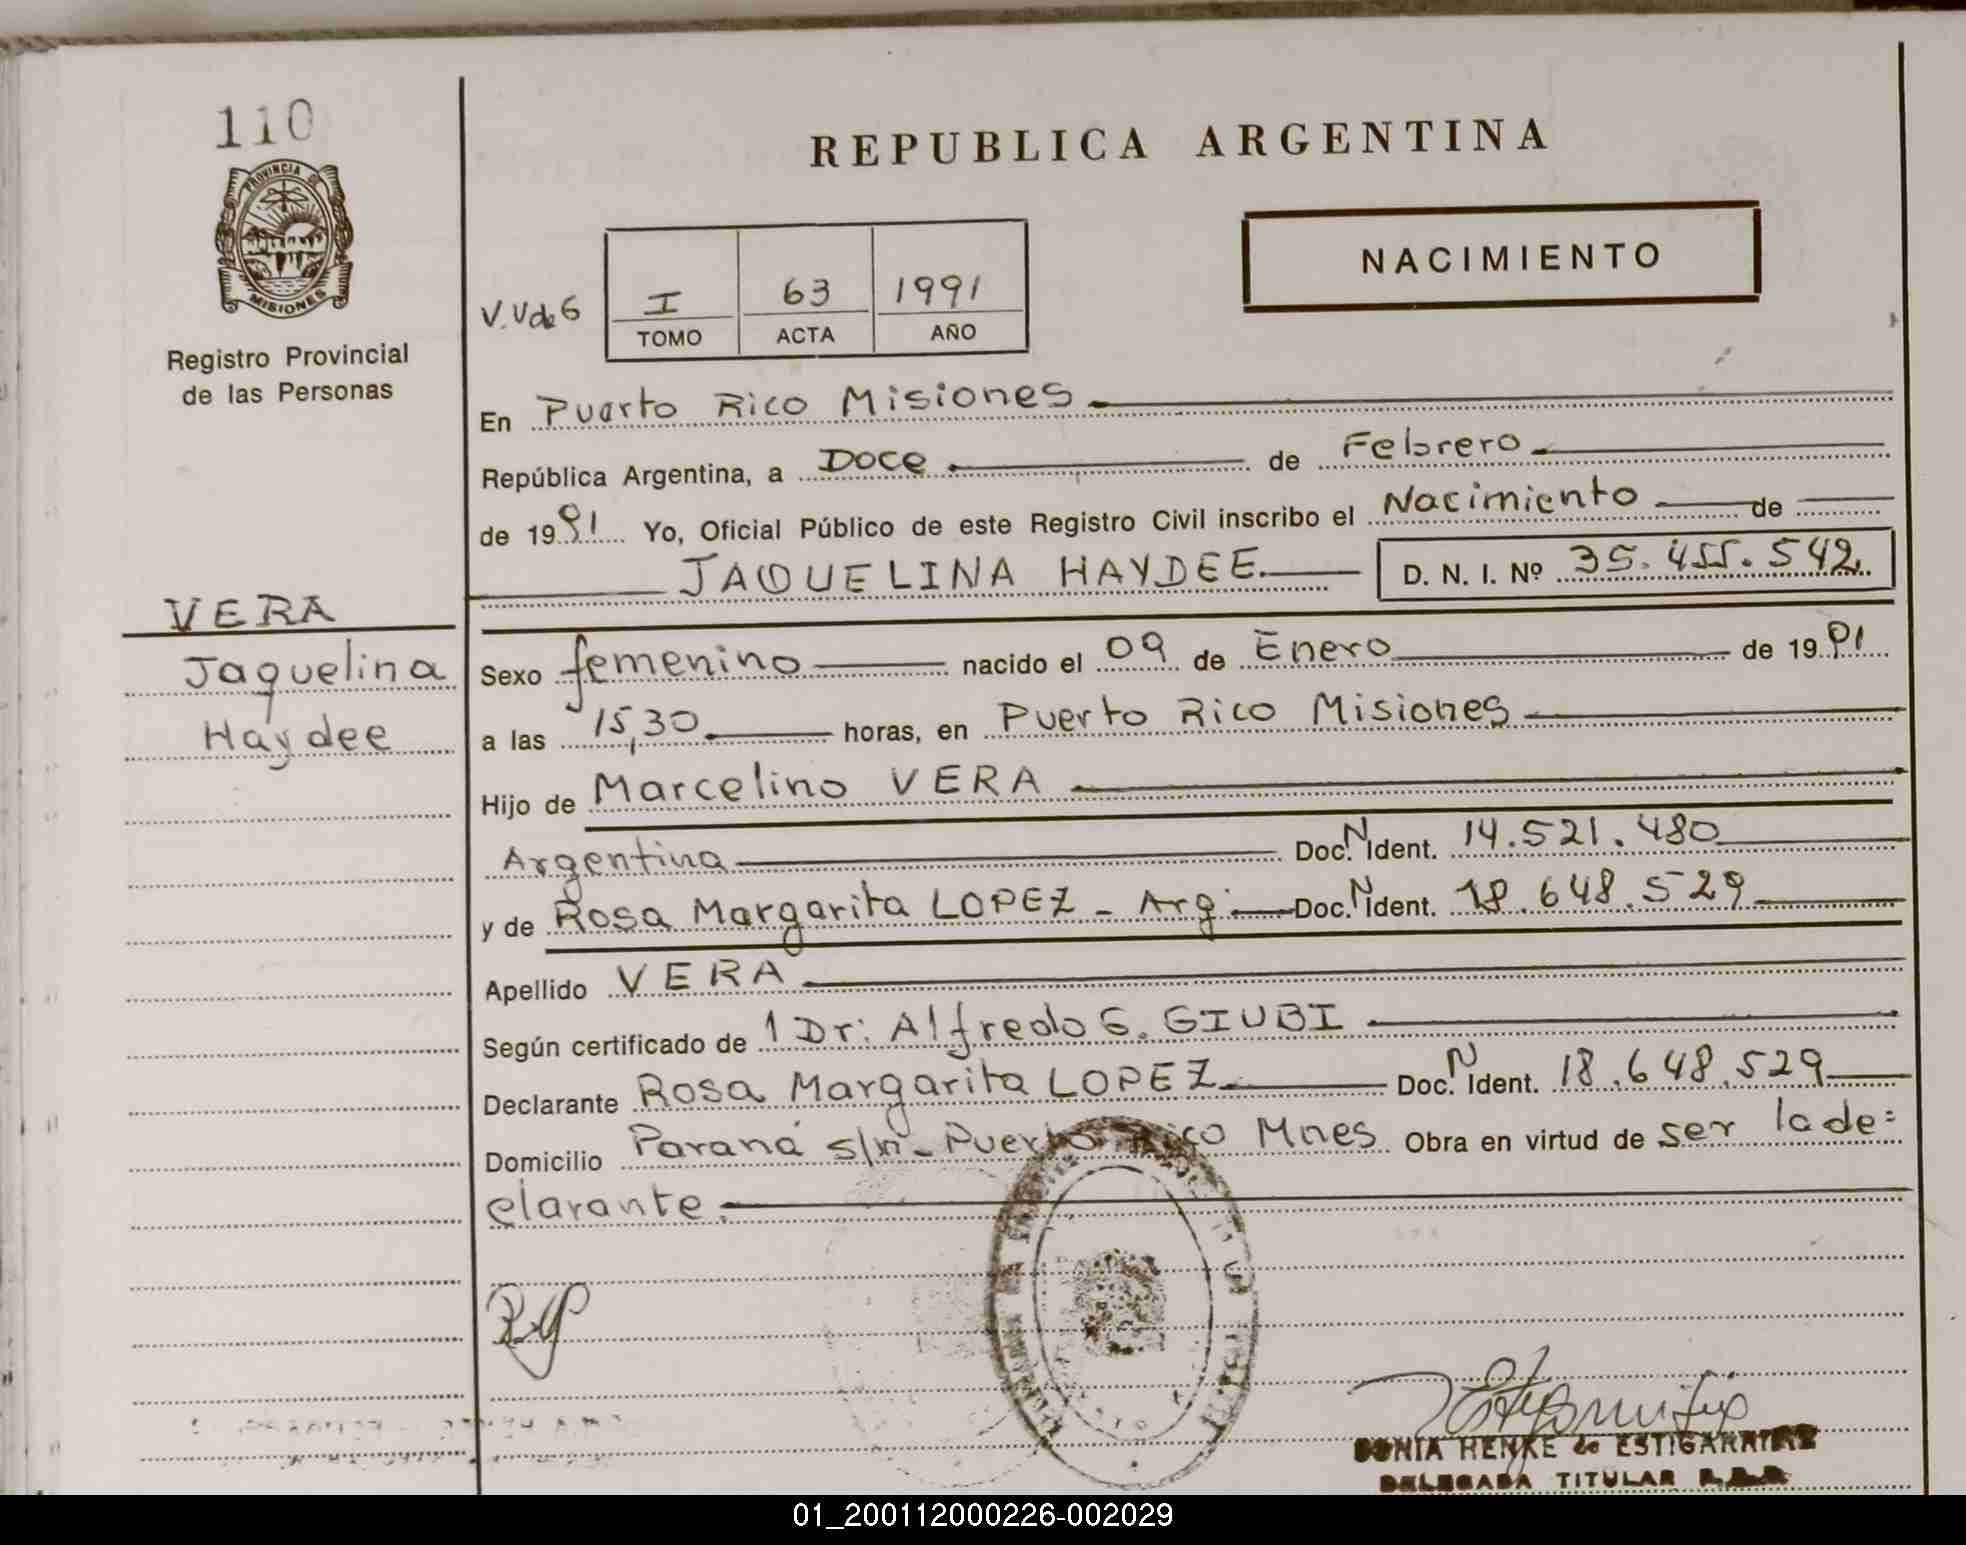 110
REPUBLICA ARGENTINA
PROVINCIA DE
MISIONES
Registro Provincial
de las Personas
NACIMIENTO
V.V de G
I 63 1991
TOMO ACTA AÑO
En Puerto Rico Misiones
República Argentina, a Doce de Febrero
de 1991 Yo, Oficial Público de este Registro Civil inscribo el Nacimiento de
JAQUELINA HAYDEE. D. N. I. Nº 35.455.542
VERA
Jaquelina
Haydee
Sexo femenino nacido el 09 de Enero de 1991
a las 15,30 horas, en Puerto Rico Misiones
Hijo de Marcelino VERA
Argentina Doc. N Ident. 14.521.480
y de Rosa Margarita LOPEZ - Arg. Doc. N Ident. 18.648.529
Apellido VERA
Según certificado de 1 Dr: Alfredo G. GIUBI
Declarante Rosa Margarita LOPEZ Doc. N Ident. 18.648.529
Domicilio Paraná s/n - Puerto Rico Mnes Obra en virtud de ser la de=
clarante.
SONIA HENKE de ESTIGARRIBIA
DELEGADA TITULAR
01_200112000226-002029